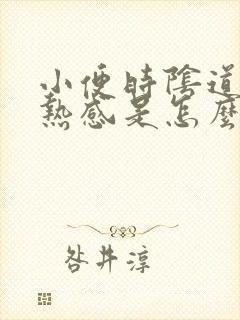 小便時陰道
熱感是怎麼
咎井淳